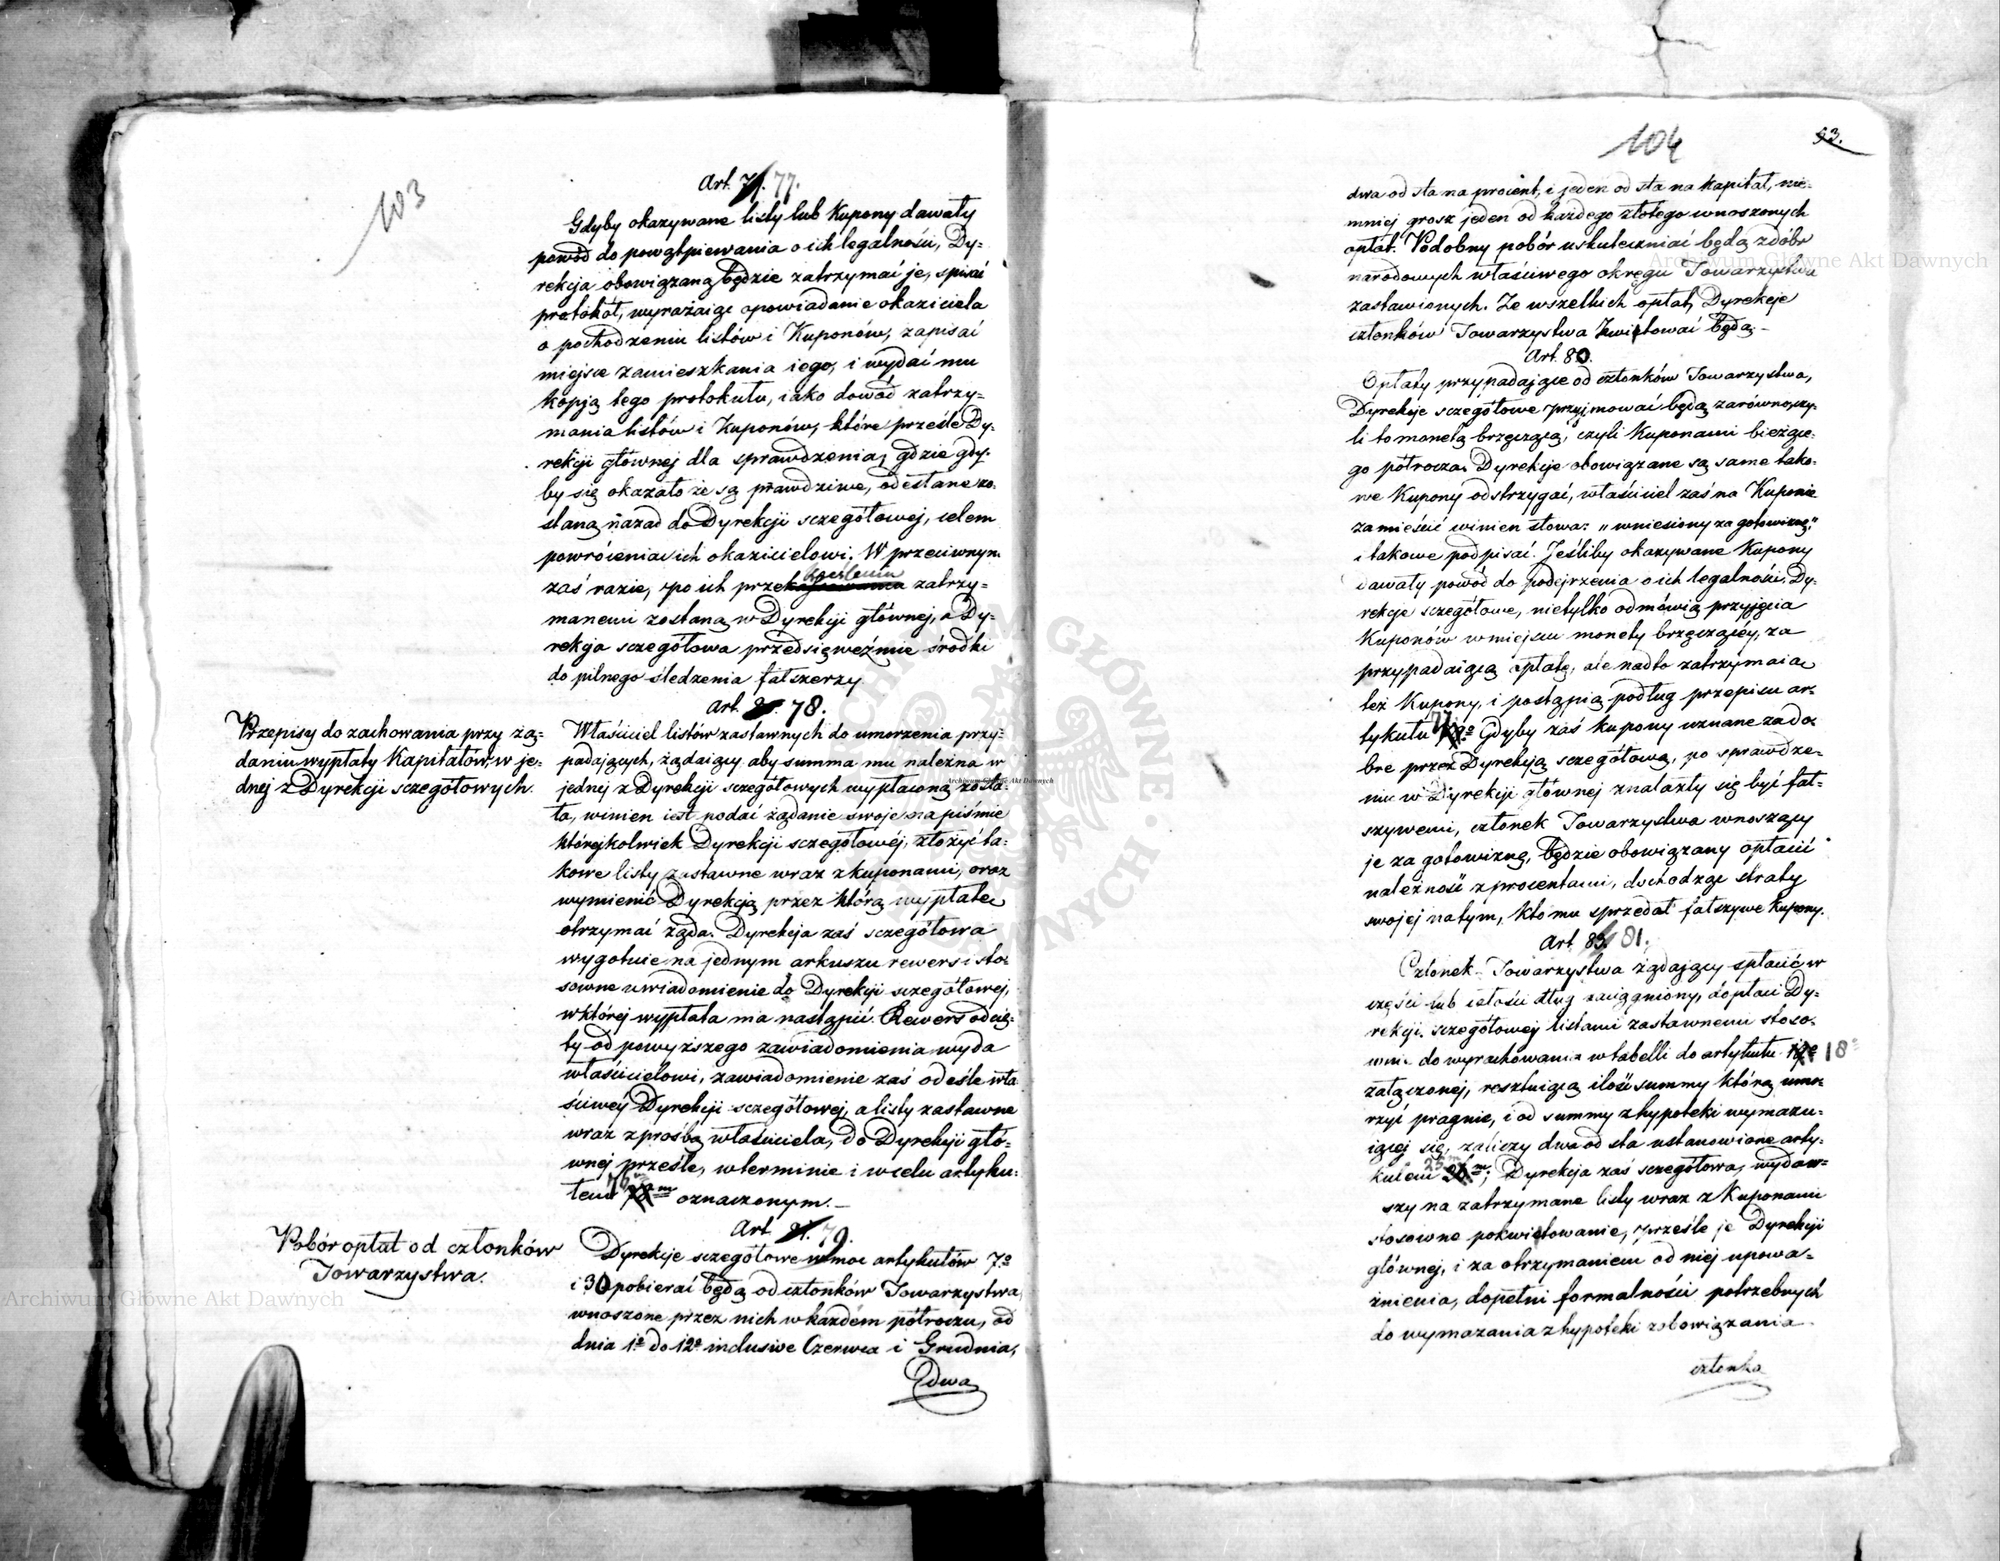 103
Art. 77.
Gdyby okazywane listy lub Kupony dawały
powód do powątpiewania o ich legalności, Dy-
rekcja obowiązaną będzie zatrzymać je, spisać
protokół, wyrażaiąc opowiadanie okaziciela
o pochodzeniu listów i Kuponów, zapisać
miejsce zamieszkania iego, i wydać mu
kopją tego protokułu, iako dowód zatrzy-
mania listów i Kuponów, które prześle Dy-
rekcji głównej dla sprawdzenia, gdzie gdy-
by się okazało że są prawdziwe, odesłane zo-
staną nazad do Dyrekcji sczegółowej, celem
powrócenia ich okazicielowi. W przeciwnym
zaś razie, po ich przekreśleniu zatrzy-
manemi zostaną w Dyrekcji głównej, a Dy-
rekcja sczegółowa przedsięweźmie środki
do pilnego śledzenia fałszerzy.
Art. 78.
Przepisy do zachowania przy żą-
daniu wypłaty Kapitałów, w je-
dnej z Dyrekcji sczegółowych.
Właściciel listów zastawnych do umorzenia przy-
padających, żądaiący aby summa mu należna w
jednej z Dyrekcji sczegółowych wypłaconą zosta-
ła, winien iest podać żądanie swoje na piśmie
którejkolwiek Dyrekcji sczegółowéj, złożyć ta-
kowe listy zastawne wraz z kuponami, oraz
wymienić Dyrekcją przez którą wypłatę
otrzymać żąda. Dyrekcja zaś sczegółowa
wygotuie na jednym arkuszu rewers i sto-
sowne uwiadomienie do Dyrekcji sczegółowej,
w której wypłata ma nastąpić. Rewers odcię-
ty od powyższego zawiadomienia wyda
właścicielowi, zawiadomienie zaś odeśle wła-
ściwej Dyrekcji sczegółowej, a listy zastawne
wraz z prośbą właściciela, do Dyrekcji głó-
wnej prześle, w terminie i w celu artyku-
łem 76m oznaczonym. —
Art. 79.
Pobór opłat od członków
Towarzystwa.
Dyrekcje sczegółowe w moc artykułów 7o
i 30 pobierać będą od członków Towarzystwa,
wnoszone przez nich w każdém półroczu, od
dnia 1o do 12o inclusive Czerwca i Grudnia,
dwa
104
93.
dwa od sta na procent, i jeden od sta na kapitał, nie-
mniej grosz jeden od każdego złotego wnoszonych
opłat. Podobny pobór uskuteczniać będą z dóbr
narodowych właściwego okręgu Towarzystwu
zastawionych. Ze wszelkich opłat, Dyrekcje
członków Towarzystwa kwitować będą. —
Art. 80.
Opłaty przypadające od członków Towarzystwa,
Dyrekcje sczegółowe przyjmować będą zarówno, czy-
li to monetą brzęczącą, czyli Kuponami bieżące-
go półrocza. Dyrekcje obowiązane są same tako-
we Kupony odstrzygać, właściciel zaś na Kuponie
zamieścić winien słowa: „wniesiony za gotowiznę"
i takowe podpisać. Jeśliby okazywane Kupony
dawały powód do podejrzenia o ich legalności, Dy-
rekcje sczegółowe, nietylko odmówią przyjęcia
Kuponów w miejscu monety brzęczącéj, za
przypadaiącą opłatę, ale nadto zatrzymaią
też Kupony, i postąpią podług przepisu ar-
tykułu 77o Gdyby zaś kupony uznane za do-
bre przez Dyrekcją sczegółową, po sprawdze-
niu w Dyrekcji głównej znalazły się być fał-
szywemi, członek Towarzystwa wnoszący
je za gotowiznę, będzie obowiązany opłacić
należność z procentami, dochodząc straty
swojej na tym, kto mu sprzedał fałszywe Kupony.
Art. 81.
Członek Towarzystwa żądający spłacić w
części lub całości dług zaciągniony, dopłaci Dy-
rekcji sczegółowej listami zastawnemi stoso-
wnie do wyrachowania w tabelli do artykułu 18o
załączonej, resztuiącą ilość summy którą umo-
rzyć pragnie, i od summy z hypoteki wymazu-
iącej się, zaliczy dwa od sta ustanowione arty-
kułem 25m; Dyrekcja zaś sczegółowa, wydaw-
szy na zatrzymane listy wraz z Kuponami
stosowne pokwitowanie, prześle je Dyrekcji
głównej, i za otrzymaniem od niej upowa-
żnienia, dopełni formalności potrzebnych
do wymazania z hypoteki zobowiązania
członka
Archiwum Główne Akt Dawnych
Archiwum Główne Akt Dawnych
Archiwum Główne Akt Dawnych